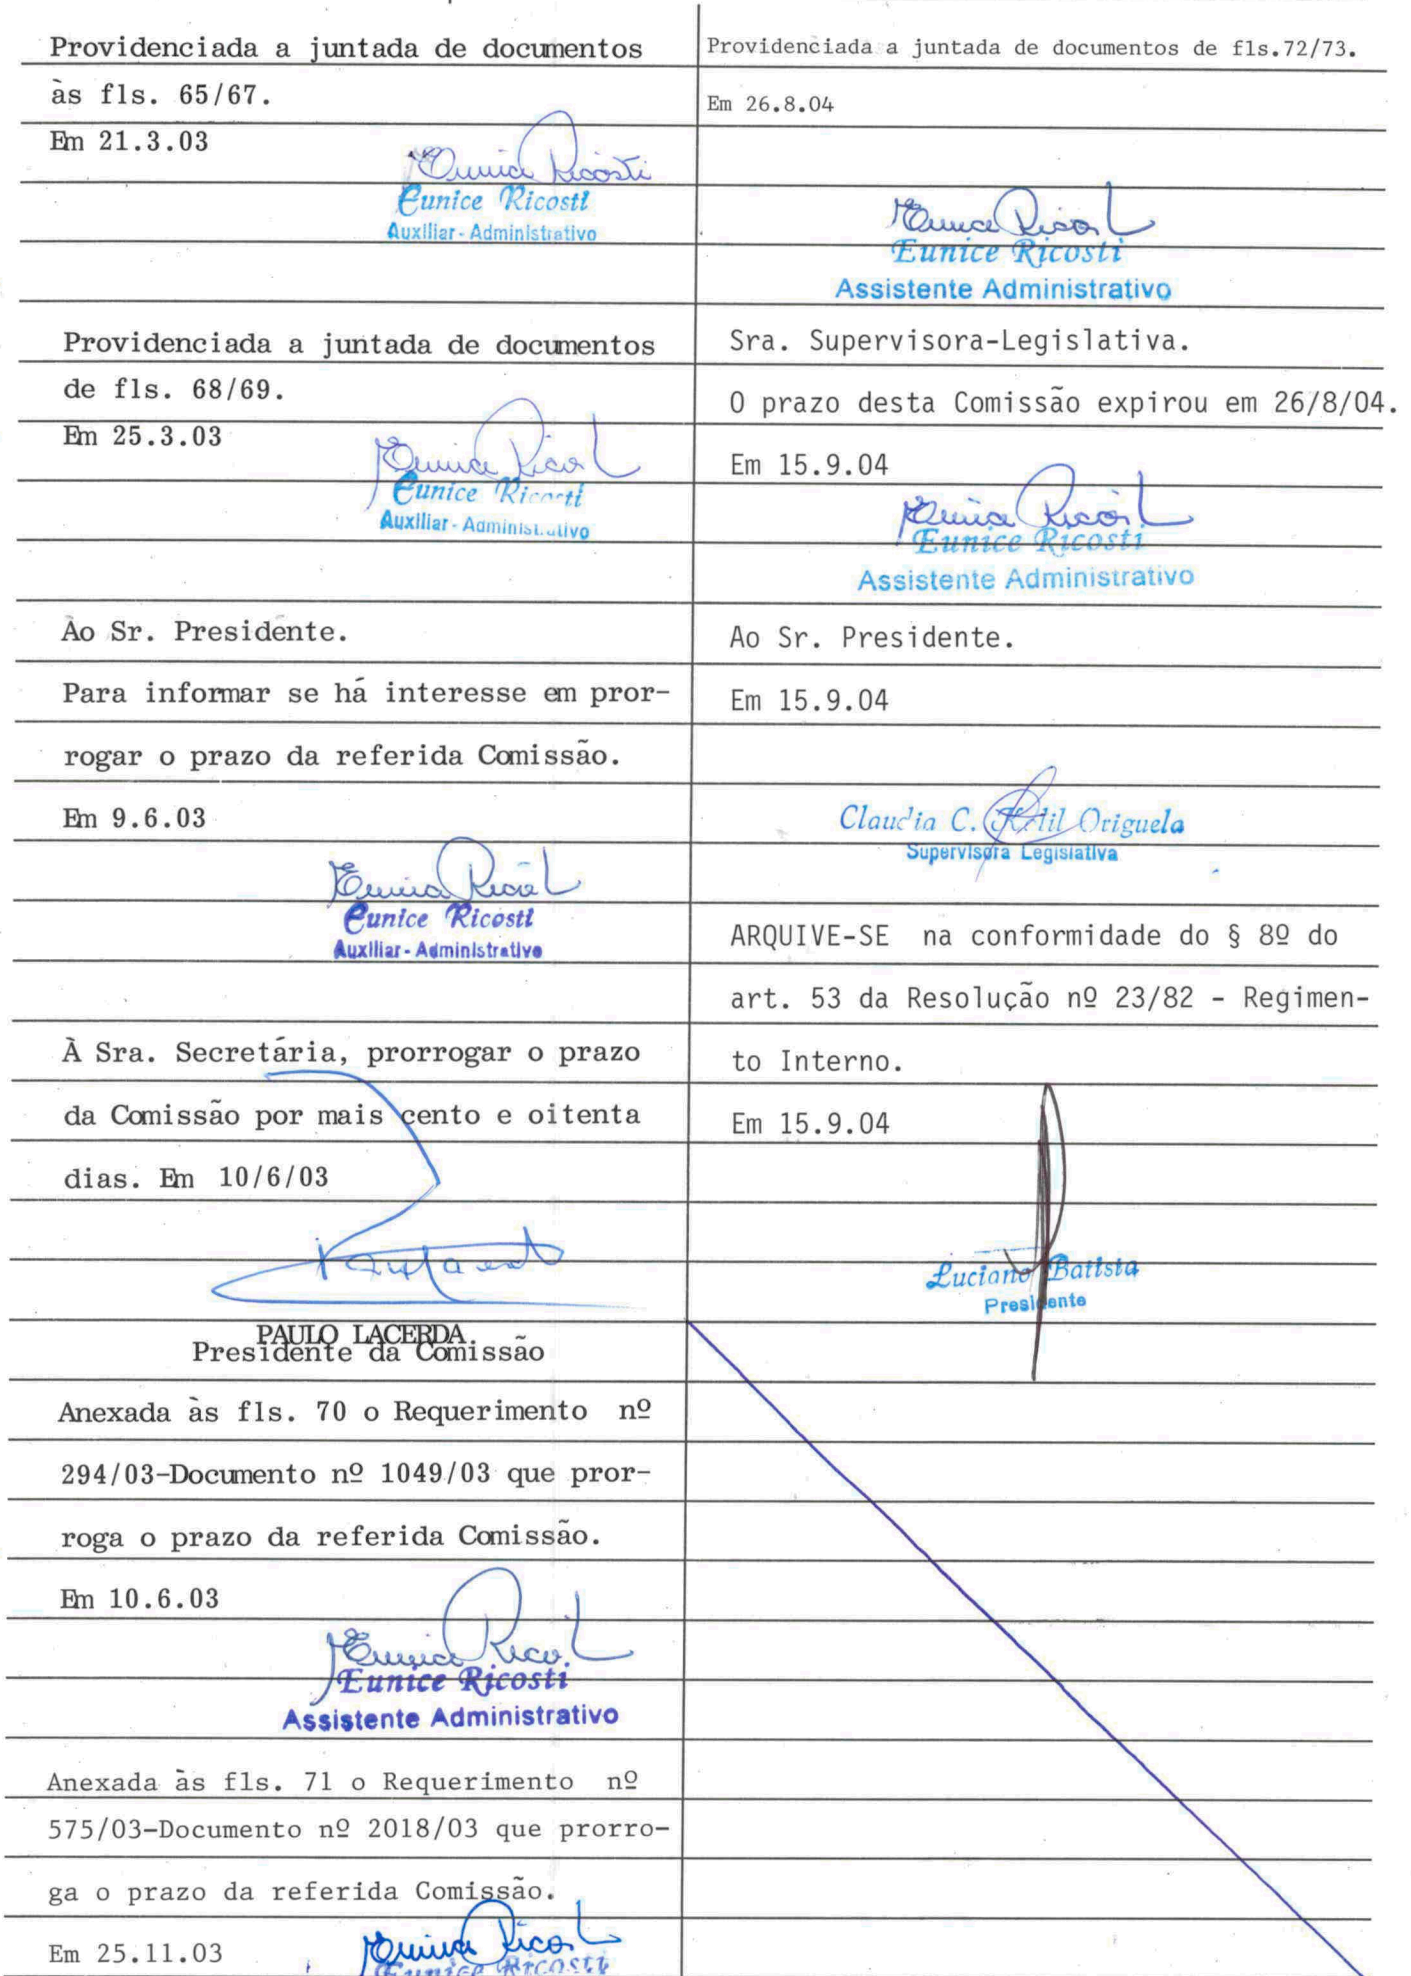 Providenciada a juntada de documentos
às fls. 65/67.
Em 21.3.03
Eunice Ricosti
Eunice Ricosti
Auxiliar-Administrativo
Providenciada a juntada de documentos
de fls. 68/69.
Em 25.3.03
Eunice Ricosti
Eunice Ricosti
Auxiliar-Administrativo
Ào Sr. Presidente.
Para informar se há interesse em pror-
rogar o prazo da referida Comissão.
Em 9.6.03
Eunice Ricosti
Eunice Ricosti
Auxiliar-Administrativo
À Sra. Secretária, prorrogar o prazo
da Comissão por mais cento e oitenta
dias. Em 10/6/03
PAULO LACERDA
Presidente da Comissão
Anexada às fls. 70 o Requerimento nº
294/03-Documento nº 1049/03 que pror-
roga o prazo da referida Comissão.
Em 10.6.03
Eunice Ricosti
Eunice Ricosti
Assistente Administrativo
Anexada às fls. 71 o Requerimento nº
575/03-Documento nº 2018/03 que prorro-
ga o prazo da referida Comissão.
Em 25.11.03
Eunice Ricosti
Eunice Ricosti
Providenciada a juntada de documentos de fls.72/73.
Em 26.8.04
Eunice Ricosti
Eunice Ricosti
Assistente Administrativo
Sra. Supervisora-Legislativa.
O prazo desta Comissão expirou em 26/8/04.
Em 15.9.04
Eunice Ricosti
Eunice Ricosti
Assistente Administrativo
Ao Sr. Presidente.
Em 15.9.04
Claudia C. Origuela
Supervisora Legislativa
ARQUIVE-SE na conformidade do § 8º do
art. 53 da Resolução nº 23/82 - Regimen-
to Interno.
Em 15.9.04
Luciano Batista
Presidente